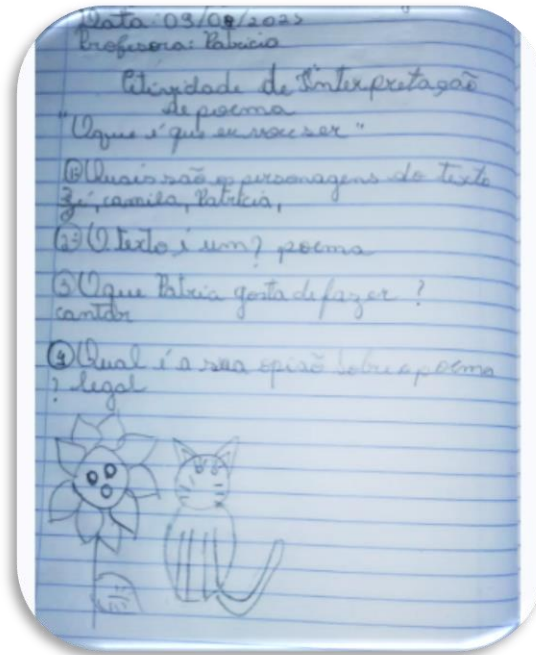 Data: 09/08/2023
Professora: Patricia
Atividade de Interpretação
de poema
"Oque é que eu vou ser"
① Quais são os personagens do texto
Zé, camila, Patricia,
② O texto é um? poema
③ Oque Patria gosta de fazer ?
cantar
④ Qual é a sua opiniao sobre o poema
? legal